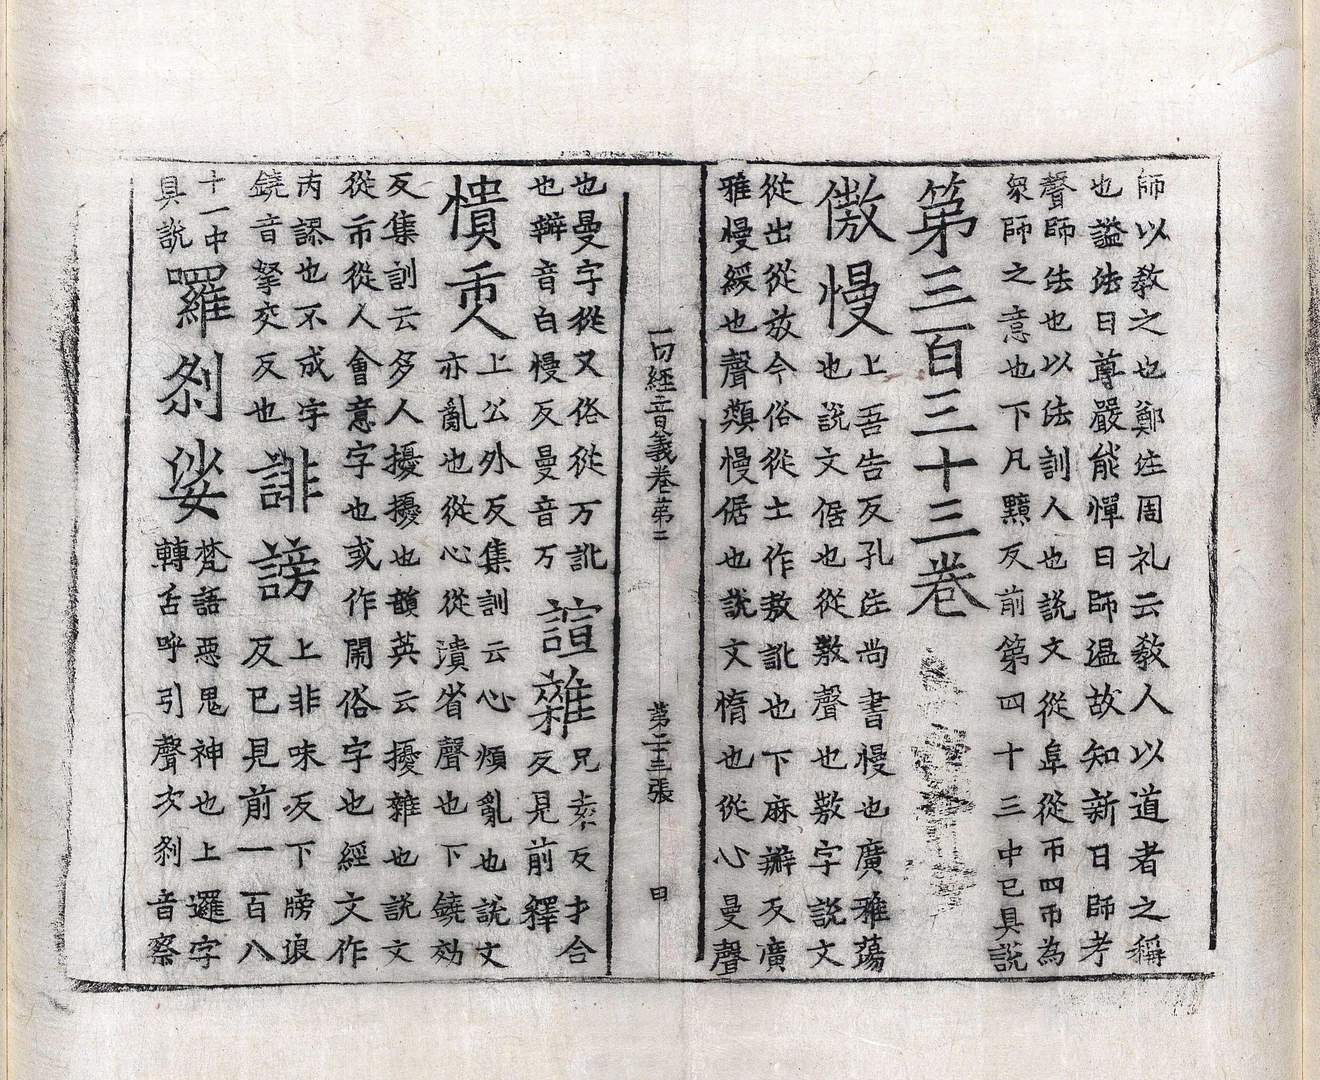 師以教之也鄭注周礼云教人以道者之稱
也謚法曰尊嚴能憚曰師温故知新曰師考
聲師法也以法訓人也説文從𠂤從帀四帀為
衆師之意也下凡黶反前第四十三中已具説
第三百三十三卷
傲慢
上吾告反孔注尚書慢也廣雅蕩
也説文倨也從敖聲也敖字説文
從出從放今俗從土作敖訛也下麻辦反廣
雅慢緩也聲類慢倨也説文惰也從心曼聲
一切經音義卷第二 第二十三張 曰
也曼字從又俗從万訛
也辦音白慢反曼音万
諠雜
兄袁反下才合
反見前釋
憒𠆲
上公外反集訓云心煩亂也説文
亦亂也從心從潰省聲也下鐃効
反集訓云多人擾擾也韻英云擾雜也説文
從市從人會意字也或作閙俗字也經文作
丙謬也不成字
鐃音拏交反也
誹謗
上非味反下牓琅
反已見前一百八
十一中
具説
羅剎娑
梵語惡鬼神也上邏字
轉舌呼引聲次剎音察